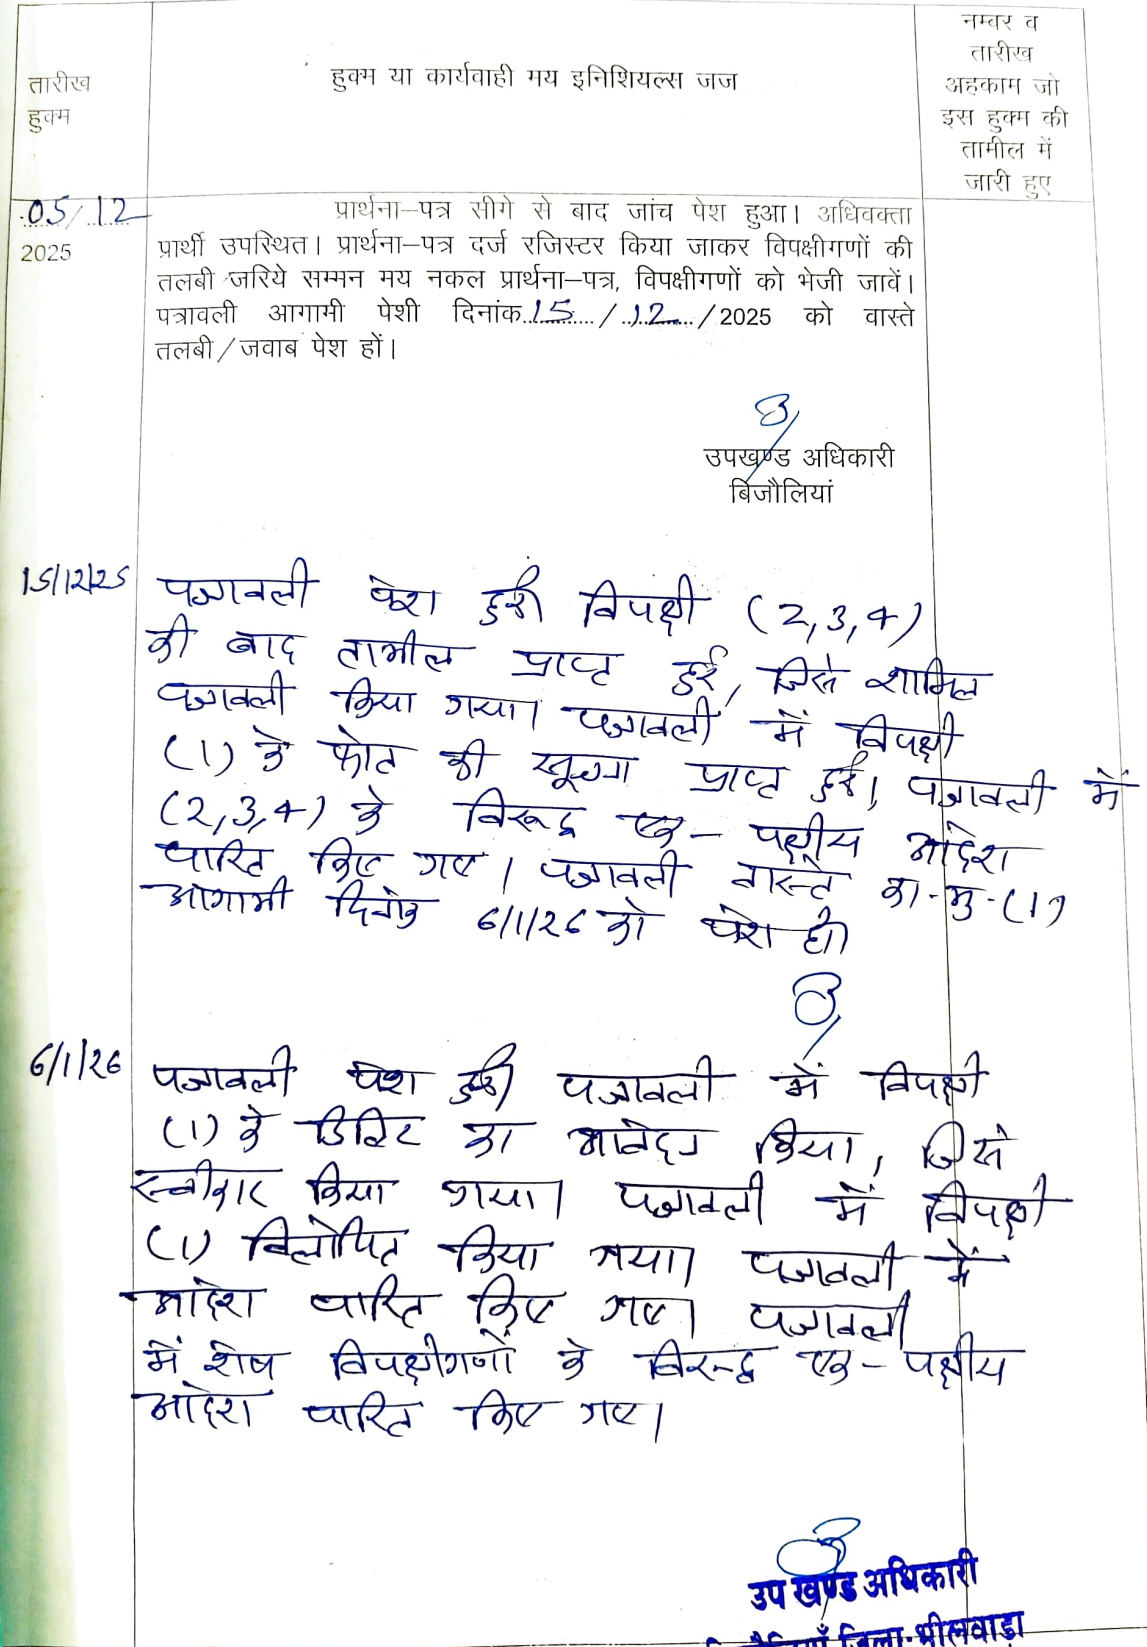 तारीख
हुक्म
हुक्म या कार्यवाही मय इनिशियल्स जज
नम्बर व
तारीख
अहकाम जो
इस हुक्म की
तामील में
जारी हुए
05/12
2025
प्रार्थना–पत्र सीगे से बाद जांच पेश हुआ। अधिवक्ता
प्रार्थी उपस्थित। प्रार्थना–पत्र दर्ज रजिस्टर किया जाकर विपक्षीगणों की
तलबी जरिये सम्मन मय नकल प्रार्थना–पत्र, विपक्षीगणों को भेजी जावें।
पत्रावली आगामी पेशी दिनांक 15 / 12 / 2025 को वास्ते
तलबी / जवाब पेश हों।
उपखण्ड अधिकारी
बिजौलियां
15/12/25
पत्रावली पेश हुई। विपक्षी (2,3,4)
की बाद तामील प्राप्त हुई, जिसे शामिल
पत्रावली किया गया। पत्रावली में विपक्षी
(1) के फोत की सूचना प्राप्त हुई। पत्रावली में
(2,3,4) के विरूद्ध एक-पक्षीय आदेश
पारित किए गए। पत्रावली वास्ते का-मु-(1)
आगामी दिनांक 6/1/26 को पेश हो।
6/1/26
पत्रावली पेश हुई। पत्रावली में विपक्षी
(1) के डिलिट का आवेदन किया, जिसे
स्वीकार किया गया। पत्रावली में विपक्षी
(1) विलोपित किया गया। पत्रावली में
आदेश पारित किए गए। पत्रावली
में शेष विपक्षीगणों के विरूद्ध एक-पक्षीय
आदेश पारित किए गए।
उप खण्ड अधिकारी
जिला-भीलवाड़ा